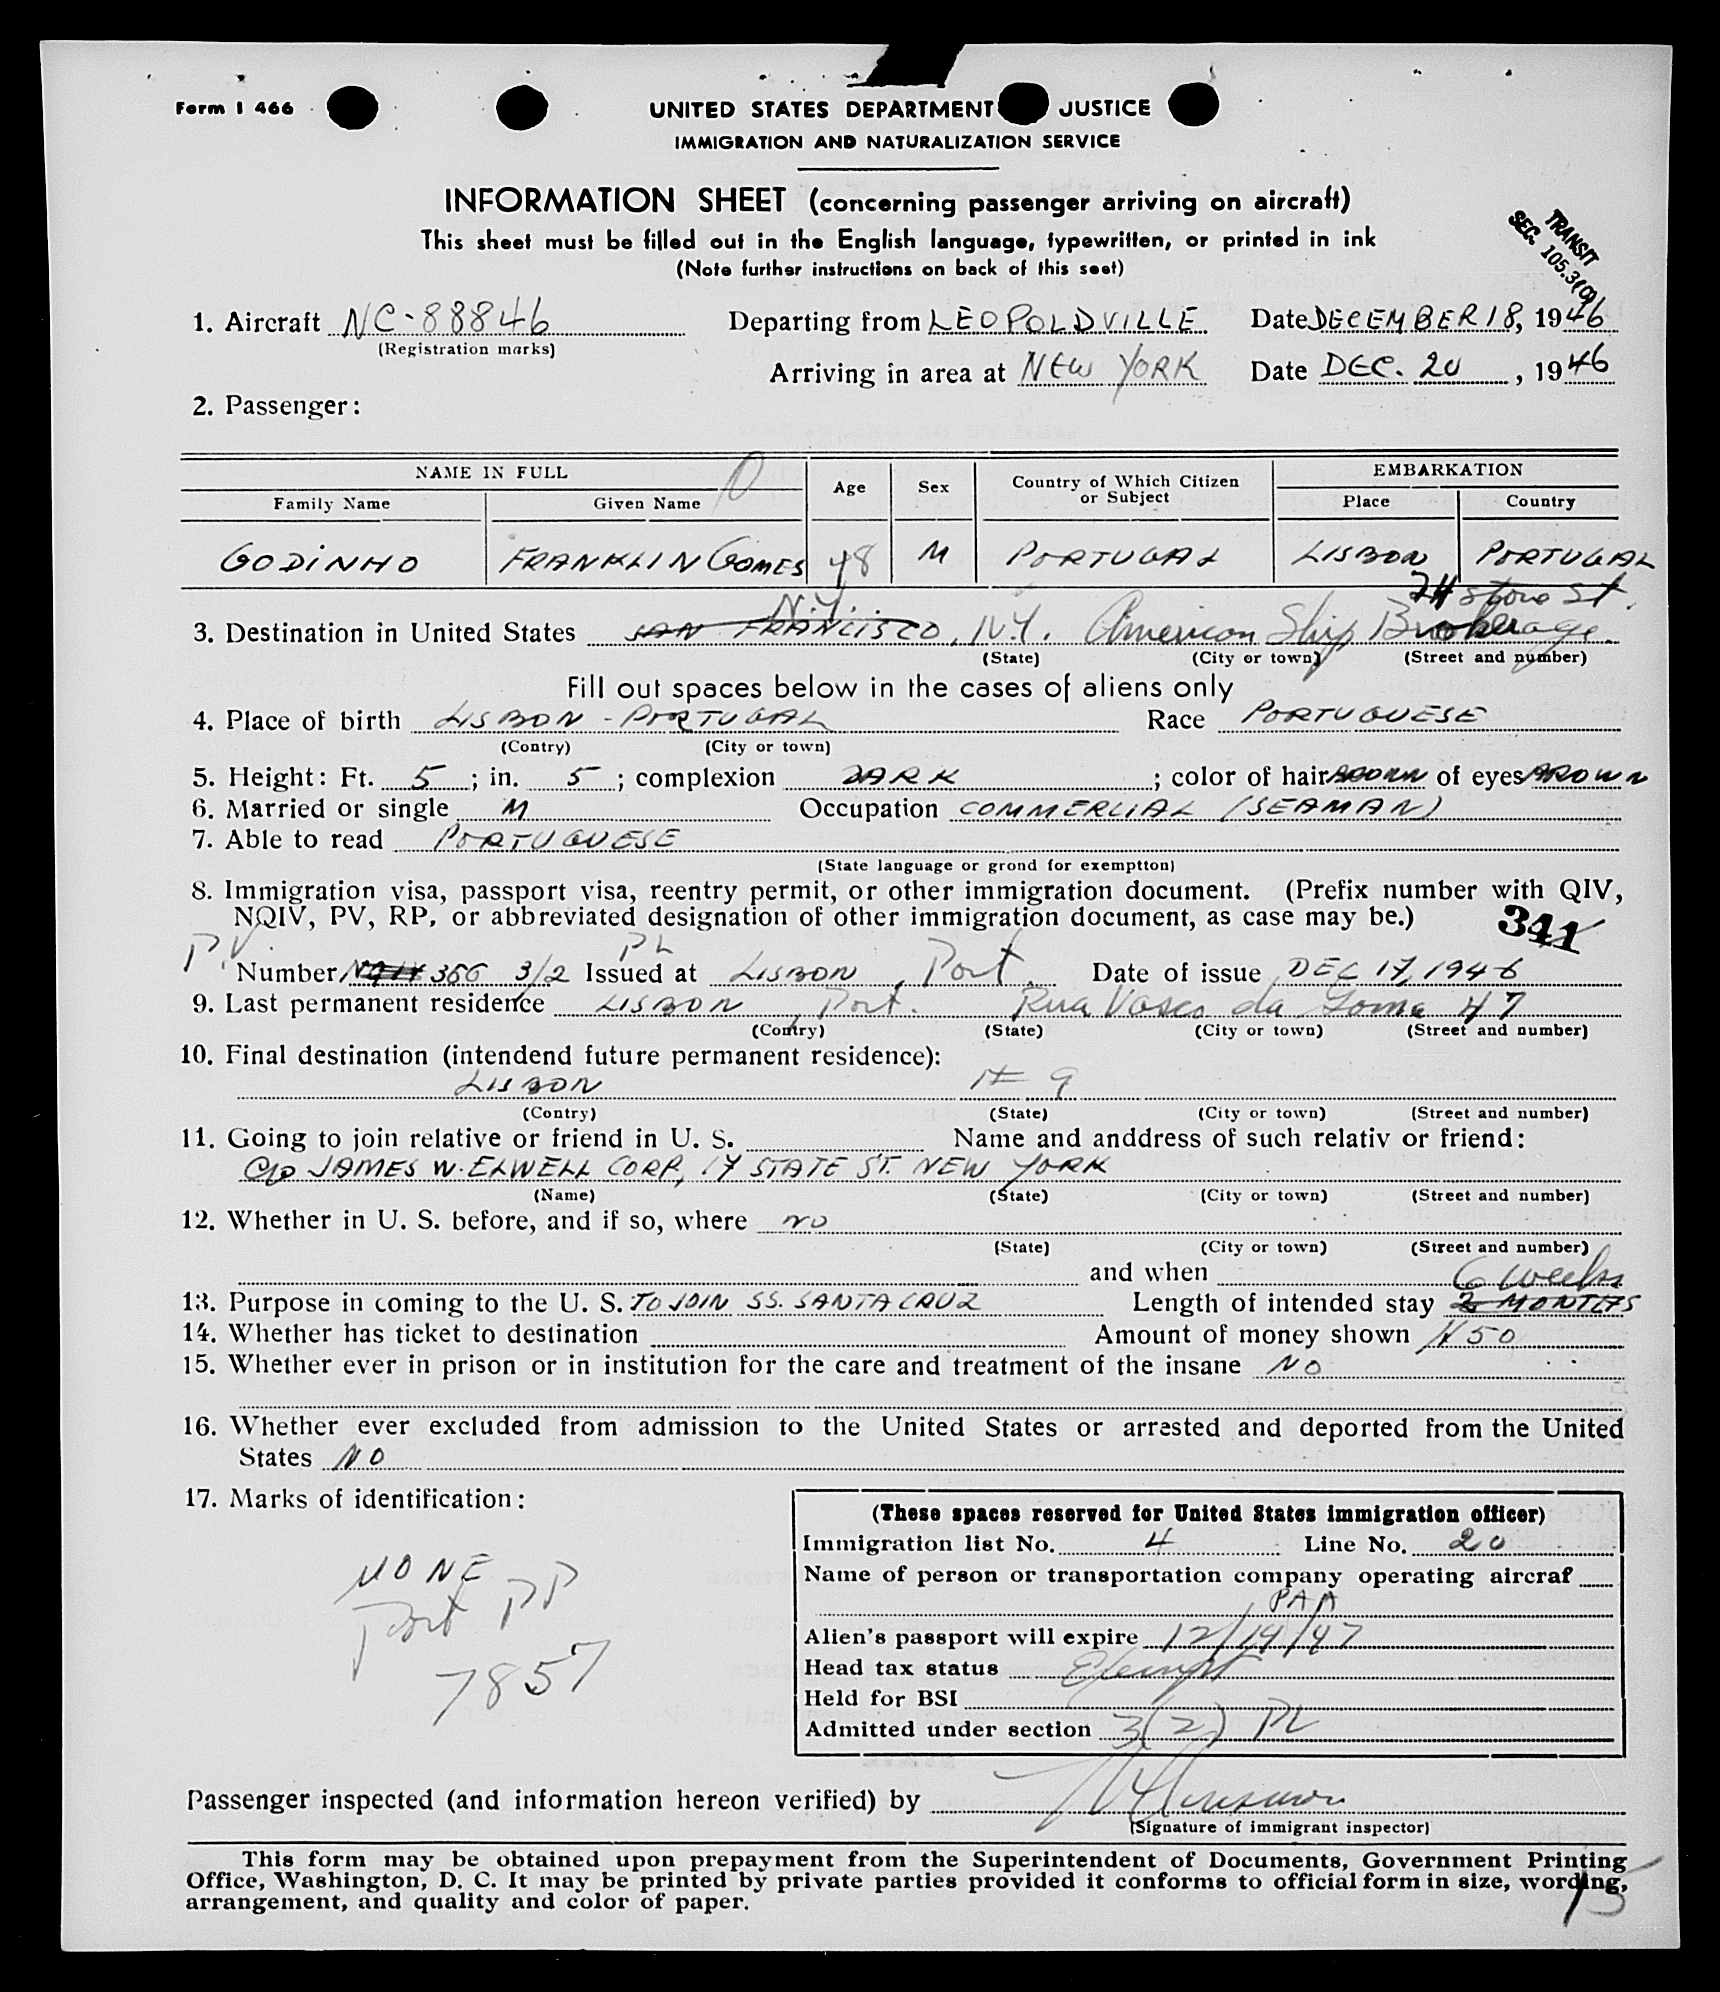 Form I 466
UNITED STATES DEPARTMENT JUSTICE
IMMIGRATION AND NATURALIZATION SERVICE
INFORMATION SHEET (concerning passenger arriving on aircraft)
This sheet must be filled out in the English language, typewritten, or printed in ink
(Note further instructions on back of this seet)
TRANSIT
SEC. 105.3(0)
1. Aircraft NC-88846 Departing from LEOPOLDVILLE Date DECEMBER 18, 1946
(Registration marks)
Arriving in area at NEW YORK Date DEC. 20, 1946
2. Passenger:
NAME IN FULL Age Sex Country of Which Citizen or Subject EMBARKATION
Family Name Given Name Place Country
GODINHO FRANKLIN GOMES 48 M PORTUGAL LISBON PORTUGAL
N.Y. 24 Stone St.
3. Destination in United States SAN FRANCISCO, N.Y. American Ship Brokerage
(State) (City or town) (Street and number)
Fill out spaces below in the cases of aliens only
4. Place of birth LISBON - PORTUGAL Race PORTUGUESE
(Contry) (City or town)
5. Height: Ft. 5; in. 5; complexion DARK; color of hair BROWN of eyes BROWN
6. Married or single M Occupation COMMERCIAL (SEAMAN)
7. Able to read PORTUGUESE
(State language or grond for exemptton)
8. Immigration visa, passport visa, reentry permit, or other immigration document. (Prefix number with QIV,
NQIV, PV, RP, or abbreviated designation of other immigration document, as case may be.)
341
P.V. PL
Number NQIV 366 3/2 Issued at LISBON, Port. Date of issue DEC 17, 1946
9. Last permanent residence LISBON, Port. Rua Vasco da Gama 47
(Contry) (State) (City or town) (Street and number)
10. Final destination (intendend future permanent residence):
LISBON # 9
(Contry) (State) (City or town) (Street and number)
11. Going to join relative or friend in U. S. Name and anddress of such relativ or friend:
C/o JAMES W. ELWELL CORP, 17 STATE ST. NEW YORK
(Name) (State) (City or town) (Street and number)
12. Whether in U. S. before, and if so, where NO
(State) (City or town) (Street and number)
and when
6 weeks
13. Purpose in coming to the U. S. TO JOIN SS. SANTA CRUZ Length of intended stay 2 MONTHS
14. Whether has ticket to destination Amount of money shown 50
15. Whether ever in prison or in institution for the care and treatment of the insane NO
16. Whether ever excluded from admission to the United States or arrested and deported from the United
States NO
17. Marks of identification:
NONE
Port PP
7857
(These spaces reserved for United States immigration officer)
Immigration list No. 4 Line No. 20
Name of person or transportation company operating aircraf
PAA
Alien's passport will expire 12/14/47
Head tax status Exempt
Held for BSI
Admitted under section 3(2) PL
Passenger inspected (and information hereon verified) by
(Signature of immigrant inspector)
This form may be obtained upon prepayment from the Superintendent of Documents, Government Printing
Office, Washington, D. C. It may be printed by private parties provided it conforms to official form in size, wording,
arrangement, and quality and color of paper.
15